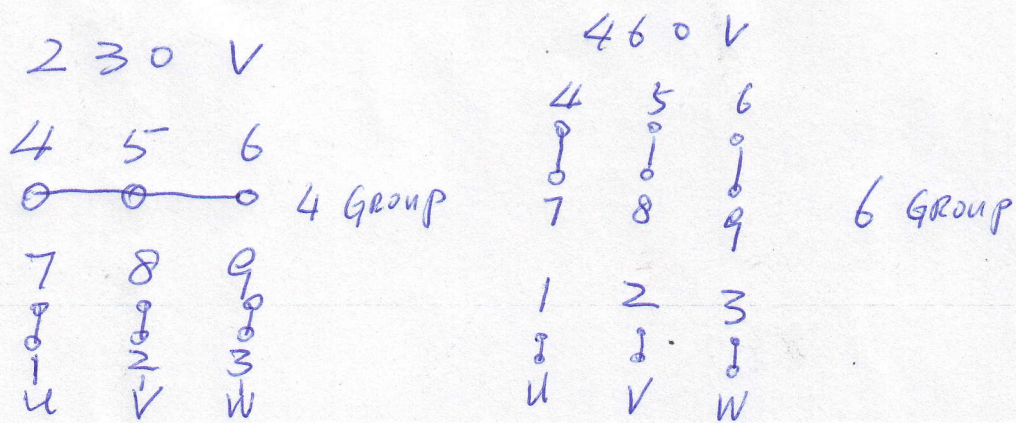 230 V
4 5 6
4 GROUP
7 8 9
1 2 3
U V W
460 V
4 5 6
7 8 9
6 GROUP
1 2 3
U V W